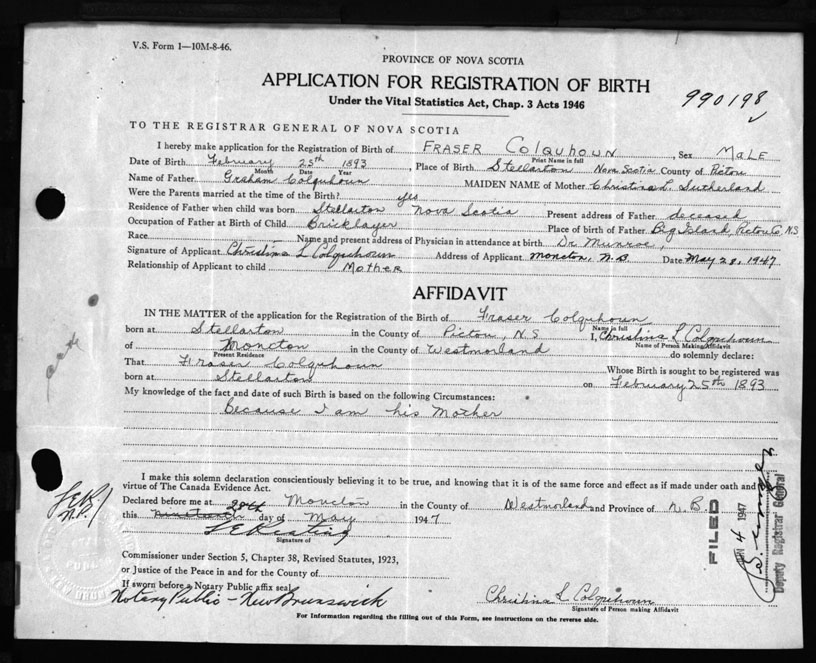 V.S. Form 1—10M-8-46.
PROVINCE OF NOVA SCOTIA
APPLICATION FOR REGISTRATION OF BIRTH
Under the Vital Statistics Act, Chap. 3 Acts 1946
990198
TO THE REGISTRAR GENERAL OF NOVA SCOTIA
I hereby make application for the Registration of Birth of FRASER COLQUHOUN, Sex MALE
Print Name in full
Date of Birth February 25th 1893 Place of Birth Stellarton Nova Scotia County of Pictou
Month Date Year
Name of Father Graham Colquhoun MAIDEN NAME of Mother Christina L. Sutherland
Were the Parents married at the time of the Birth? yes
Residence of Father when child was born Stellarton Nova Scotia Present address of Father deceased
Occupation of Father at Birth of Child Bricklayer Place of birth of Father Big Island, Pictou Co, N.S
Race Name and present address of Physician in attendance at birth Dr Munroe,
Signature of Applicant Christina L Colquhoun Address of Applicant Moncton, N.B. Date May 28, 1947
Relationship of Applicant to child Mother
AFFIDAVIT
IN THE MATTER of the application for the Registration of the Birth of Fraser Colquhoun
Name in full
born at Stellarton in the County of Pictou, N.S I, Christina L Colquhoun
Name of Person Making Affidavit
of Moncton in the County of Westmorland do solemnly declare:
Present Residence
That Fraser Colquhoun Whose Birth is sought to be registered was
born at Stellarton on February 25th 1893
My knowledge of the fact and date of such Birth is based on the following Circumstances:
Because I am his Mother
I make this solemn declaration conscientiously believing it to be true, and knowing that it is of the same force and effect as if made under oath and by
virtue of The Canada Evidence Act.
Declared before me at Moncton in the County of Westmorland and Province of N.B.
this 28th day of May 1947
Signature of
Commissioner under Section 5, Chapter 38, Revised Statutes, 1923,
or Justice of the Peace in and for the County of
If sworn before a Notary Public affix seal
Notary Public - New Brunswick
Christina L Colquhoun
Signature of Person making Affidavit
For Information regarding the filling out of this Form, see instructions on the reverse side.
FILED
4 1947
Deputy Registrar General